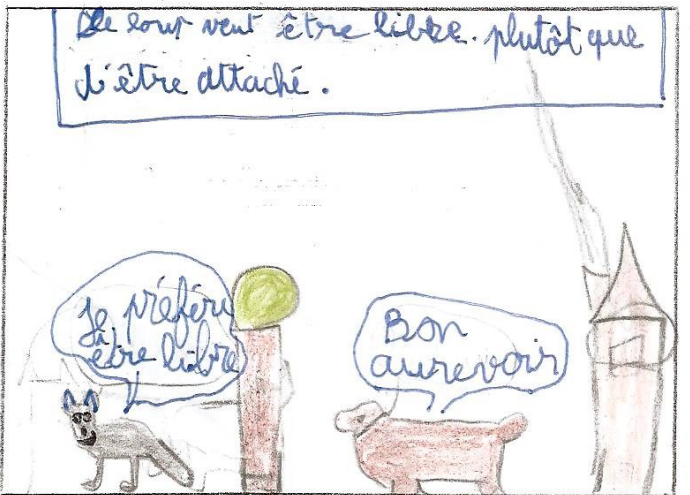 Le loup veut être libre. plutôt que
d'être attaché.
je préfére
être libre
Bon
aurevoir